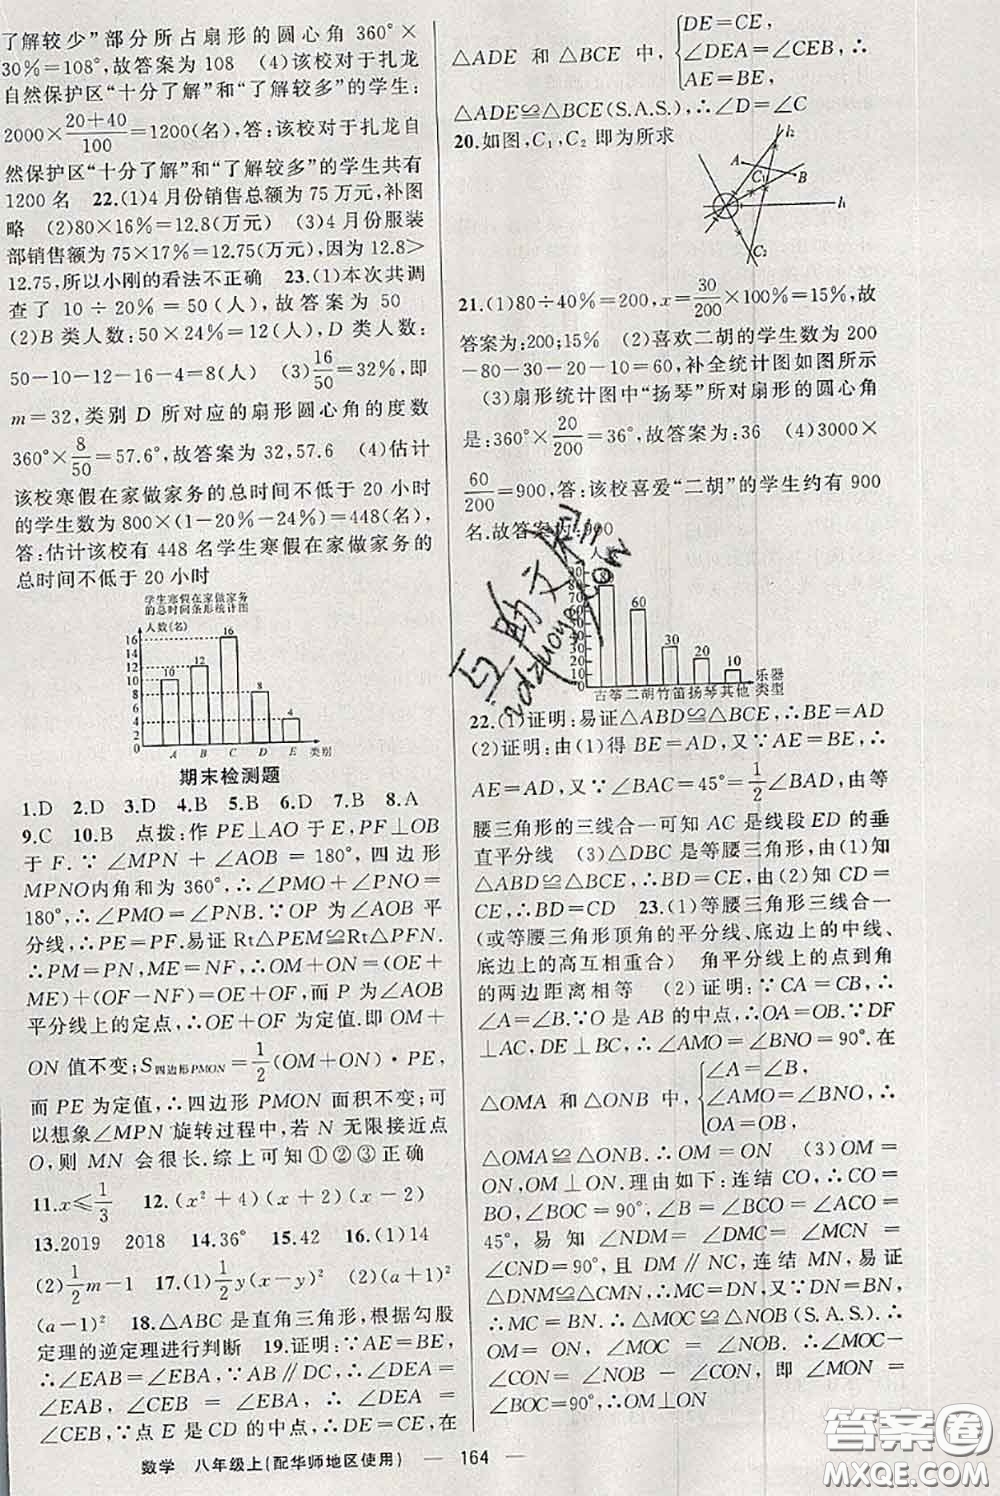 了解较少”部分所占扇形的圆心角 360°×
30%=108°,故答案为 108 (4)该校对于扎龙
自然保护区“十分了解”和“了解较多”的学生:
2000×20+40/100=1200(名),答:该校对于扎龙自
然保护区“十分了解”和“了解较多”的学生共有
1200 名 22.(1)4 月份销售总额为 75 万元,补图
略 (2)80×16%=12.8(万元) (3)4 月份服装
部销售额为 75×17%=12.75(万元),因为 12.8>
12.75,所以小刚的看法不正确 23.(1)本次共调
查了 10÷20%=50(人),故答案为 50
(2)B 类人数:50×24%=12(人),D 类人数:
50-10-12-16-4=8(人) (3)16/50=32%,即
m=32,类别 D 所对应的扇形圆心角的度数
360°×8/50=57.6°,故答案为 32,57.6 (4)估计
该校寒假在家做家务的总时间不低于 20 小时
的学生数为 800×(1-20%-24%)=448(名),
答:估计该校有 448 名学生寒假在家做家务的
总时间不低于 20 小时
学生寒假在家做家务
的总时间条形统计图
人数(名)
16
14
12
10
8
6
4
2
10 12 16 8 4
A B C D E 类别
期末检测题
1.D 2.D 3.D 4.B 5.B 6.D 7.B 8.A
9.C 10.B 点拨:作 PE⊥AO 于 E,PF⊥OB
于 F.∵∠MPN+∠AOB=180°,四边形
MPNO内角和为 360°,∴∠PMO+∠PNO=
180°,∴∠PMO=∠PNB.∵OP 为∠AOB 平
分线,∴PE=PF.易证 Rt△PEM≌Rt△PFN.
∴PM=PN,ME=NF,∴OM+ON=(OE+
ME)+(OF-NF)=OE+OF,而 P 为∠AOB
平分线上的定点,∴OE+OF 为定值.即 OM+
ON 值不变;S四边形PMON=1/2(OM+ON)·PE,
而 PE 为定值,∴四边形 PMON 面积不变;可
以想象∠MPN 旋转过程中,若 N 无限接近点
O,则 MN 会很长.综上可知①②③正确
11.x≤1/3 12.(x²+4)(x+2)(x-2)
13.2019 2018 14.36° 15.42 16.(1)14
(2)1/2m-1 17.(1)1/2y(x-y)² (2)(a+1)²
(a-1)² 18.△ABC 是直角三角形,根据勾股
定理的逆定理进行判断 19.证明:∵AE=BE,
∴∠EAB=∠EBA,∵AB∥DC,∴∠DEA=
∠EAB,∠CEB=∠EBA,∴∠DEA=
∠CEB,∵点 E 是 CD 的中点,∴DE=CE,在
△ADE 和 △BCE 中,{DE=CE,
∠DEA=∠CEB,∴
AE=BE,
△ADE≌△BCE(S.A.S.),∴∠D=∠C
20.如图,C₁,C₂ 即为所求
l₂
A
C₁
B
l₁
C₂
21.(1)80÷40%=200,x=30/200×100%=15%,故
答案为:200;15% (2)喜欢二胡的学生数为 200
-80-30-20-10=60,补全统计图如图所示
(3)扇形统计图中“扬琴”所对扇形的圆心角
是:360°×20/200=36°,故答案为:36 (4)3000×
60/200=900,答:该校喜爱“二胡”的学生约有 900
名.故答案为:900
60 30 20 10
古筝二胡竹笛扬琴其他
乐器
类型
22.(1)证明:易证△ABD≌△BCE,∴BE=AD
(2)证明:由(1)得 BE=AD,又∵AE=BE,∴
AE=AD,又∵∠BAC=45°=1/2∠BAD,由等
腰三角形的三线合一可知 AC 是线段 ED 的垂
直平分线 (3)△DBC 是等腰三角形,由(1)知
△ABD≌△BCE,∴BD=CE,由(2)知 CD=
CE,∴BD=CD 23.(1)等腰三角形三线合一
(或等腰三角形顶角的平分线、底边上的中线、
底边上的高互相重合) 角平分线上的点到角
的两边距离相等 (2)证明:∵CA=CB,∴
∠A=∠B.∵O 是 AB 的中点,∴OA=OB.∵DF
⊥AC,DE⊥BC,∴∠AMO=∠BNO=90°.在
△OMA 和△ONB 中,{∠A=∠B,
∠AMO=∠BNO,∴
OA=OB,
△OMA≌△ONB.∴OM=ON (3)OM=
ON,OM⊥ON.理由如下:连结 CO,∴CO=
BO,∠BOC=90°,∠B=∠BCO=∠ACO=
45°,易知∠NDM=∠DMC=∠MCN=
∠CND=90°,且 DM∥NC,连结 MN,易证
△DNM≌△CMN,∴MC=DN.又∵DN=BN,
∴MC=BN.∴△MOC≌△NOB(S.A.S.).∴
OM=ON,∠MOC=∠NOB.∴∠MOC-
∠CON=∠NOB-∠CON,即∠MON=
∠BOC=90°,∴OM⊥ON
数学 八年级上(配华师地区使用) — 164 —
答案圈
MXQE.COM